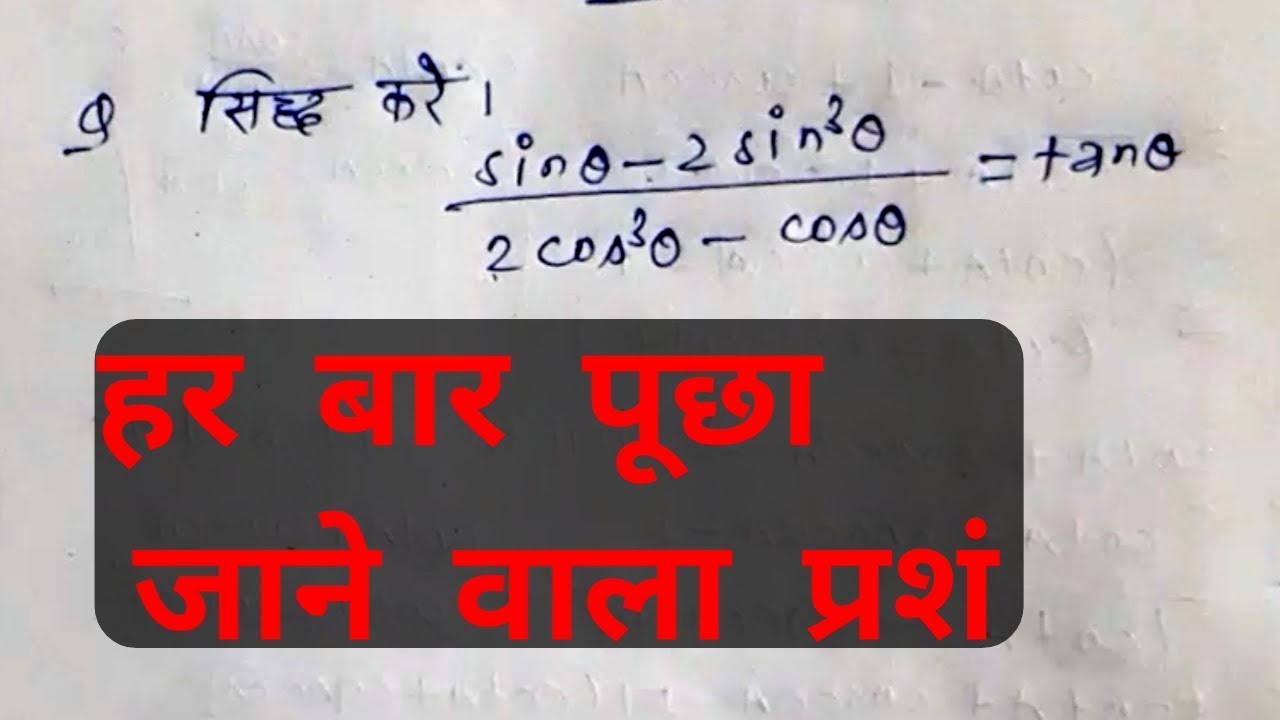 Q सिद्ध करें।
sinθ - 2 sin³θ
= tanθ
2 cos³θ - cosθ
हर बार पूछा
जाने वाला प्रशं